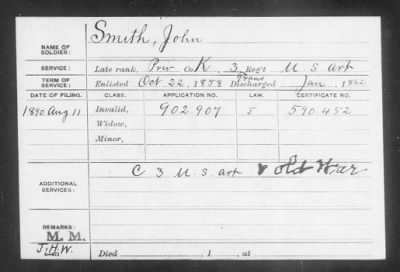 NAME OF SOLDIER: Smith, John
SERVICE: Late rank, Prev Co K, 3 Reg't U. S. Art
TERM OF SERVICE: Enlisted Oct 22, 1858 Trans Discharged Jan, 1862
DATE OF FILING. CLASS. APPLICATION NO. LAW. CERTIFICATE NO.
1890 Aug 11 Invalid, 902.907 5 590.452
Widow,
Minor,
ADDITIONAL SERVICES: C 3 U. S. art & Old War
REMARKS:
M. M.
J.H.W. Died , 1 , at